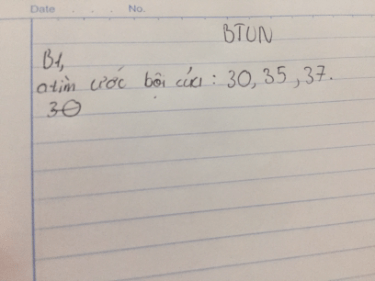 Date No.
BTVN
B1,
a tìm ước bội của : 30, 35, 37.
30